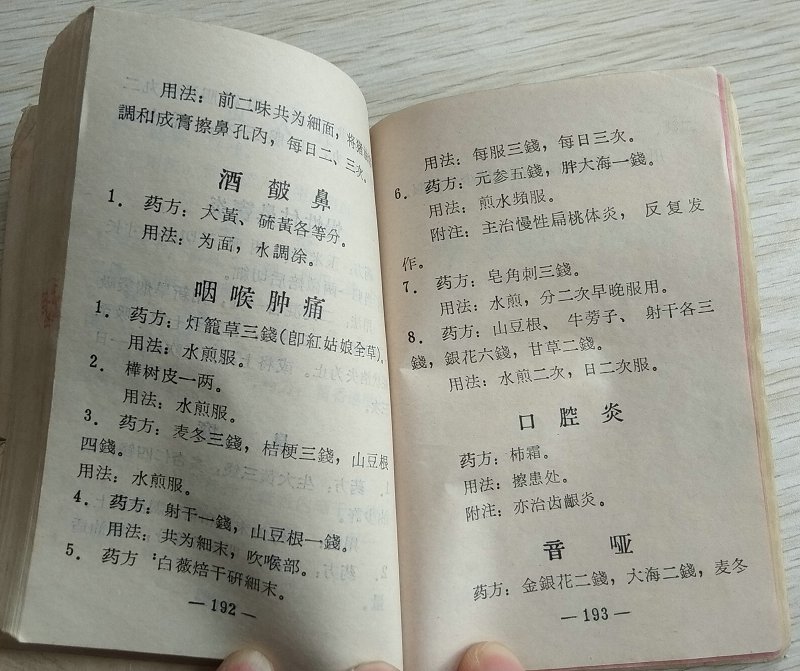 用法：前二味共为細面，将猪
調和成膏擦鼻孔內，每日二、三次。
酒皶鼻
1．药方：大黃、硫黃各等分。
用法：为面，水調涂。
咽喉肿痛
1．药方：灯籠草三錢(卽紅姑娘全草)。
用法：水煎服。
2．樺树皮一两。
用法：水煎服。
3．药方：麦冬三錢，桔梗三錢，山豆根
四錢。
用法：水煎服。
4．药方：射干一錢，山豆根一錢。
用法：共为細末，吹喉部。
5．药方：白薇焙干研細末。
—192—
用法：每服三錢，每日三次。
6．药方：元参五錢，胖大海一錢。
用法：煎水頻服。
附注：主治慢性扁桃体炎，反复发
作。
7．药方：皂角刺三錢。
用法：水煎，分二次早晚服用。
8．药方：山豆根、牛蒡子、射干各三
錢，銀花六錢，甘草二錢。
用法：水煎二次，日二次服。
口腔炎
药方：柿霜。
用法：擦患处。
附注：亦治齿齦炎。
音哑
药方：金銀花二錢，大海二錢，麦冬
—193—